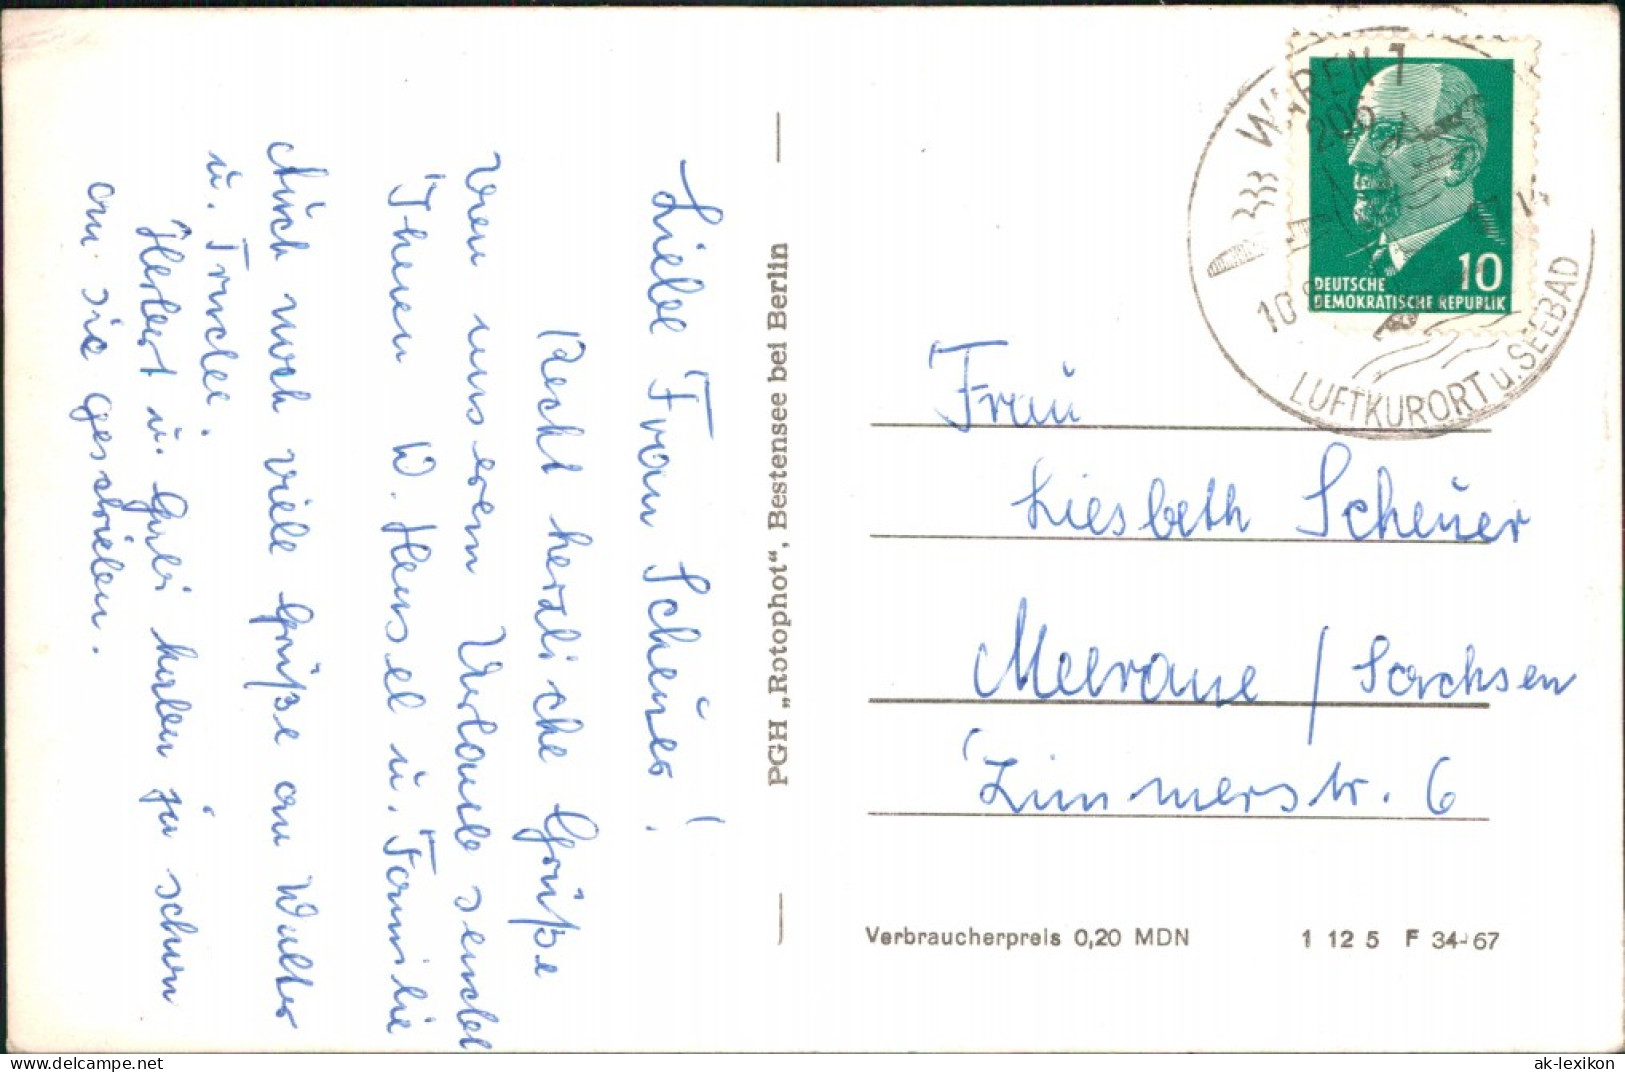 Liebe Frau Scheuer!
Recht herzliche Grüße
von unserem Urlaub sendet
Ihnen W. Hensel u. Familie
Auch noch viele Grüße an Walter
u. Trudel.
Herbert u. haben ja schon
an sie geschrieben.
PGH „Rotophot“, Bestensee bei Berlin
WAREN 1
206
10
LUFTKURORT u. SEEBAD
10
DEUTSCHE
DEMOKRATISCHE REPUBLIK
Frau
Liesbeth Scheuer
Meerane / Sachsen
Zimmerstr. 6
Verbraucherpreis 0,20 MDN 1 12 5 F 34-67
delcampe.net
ak-lexikon